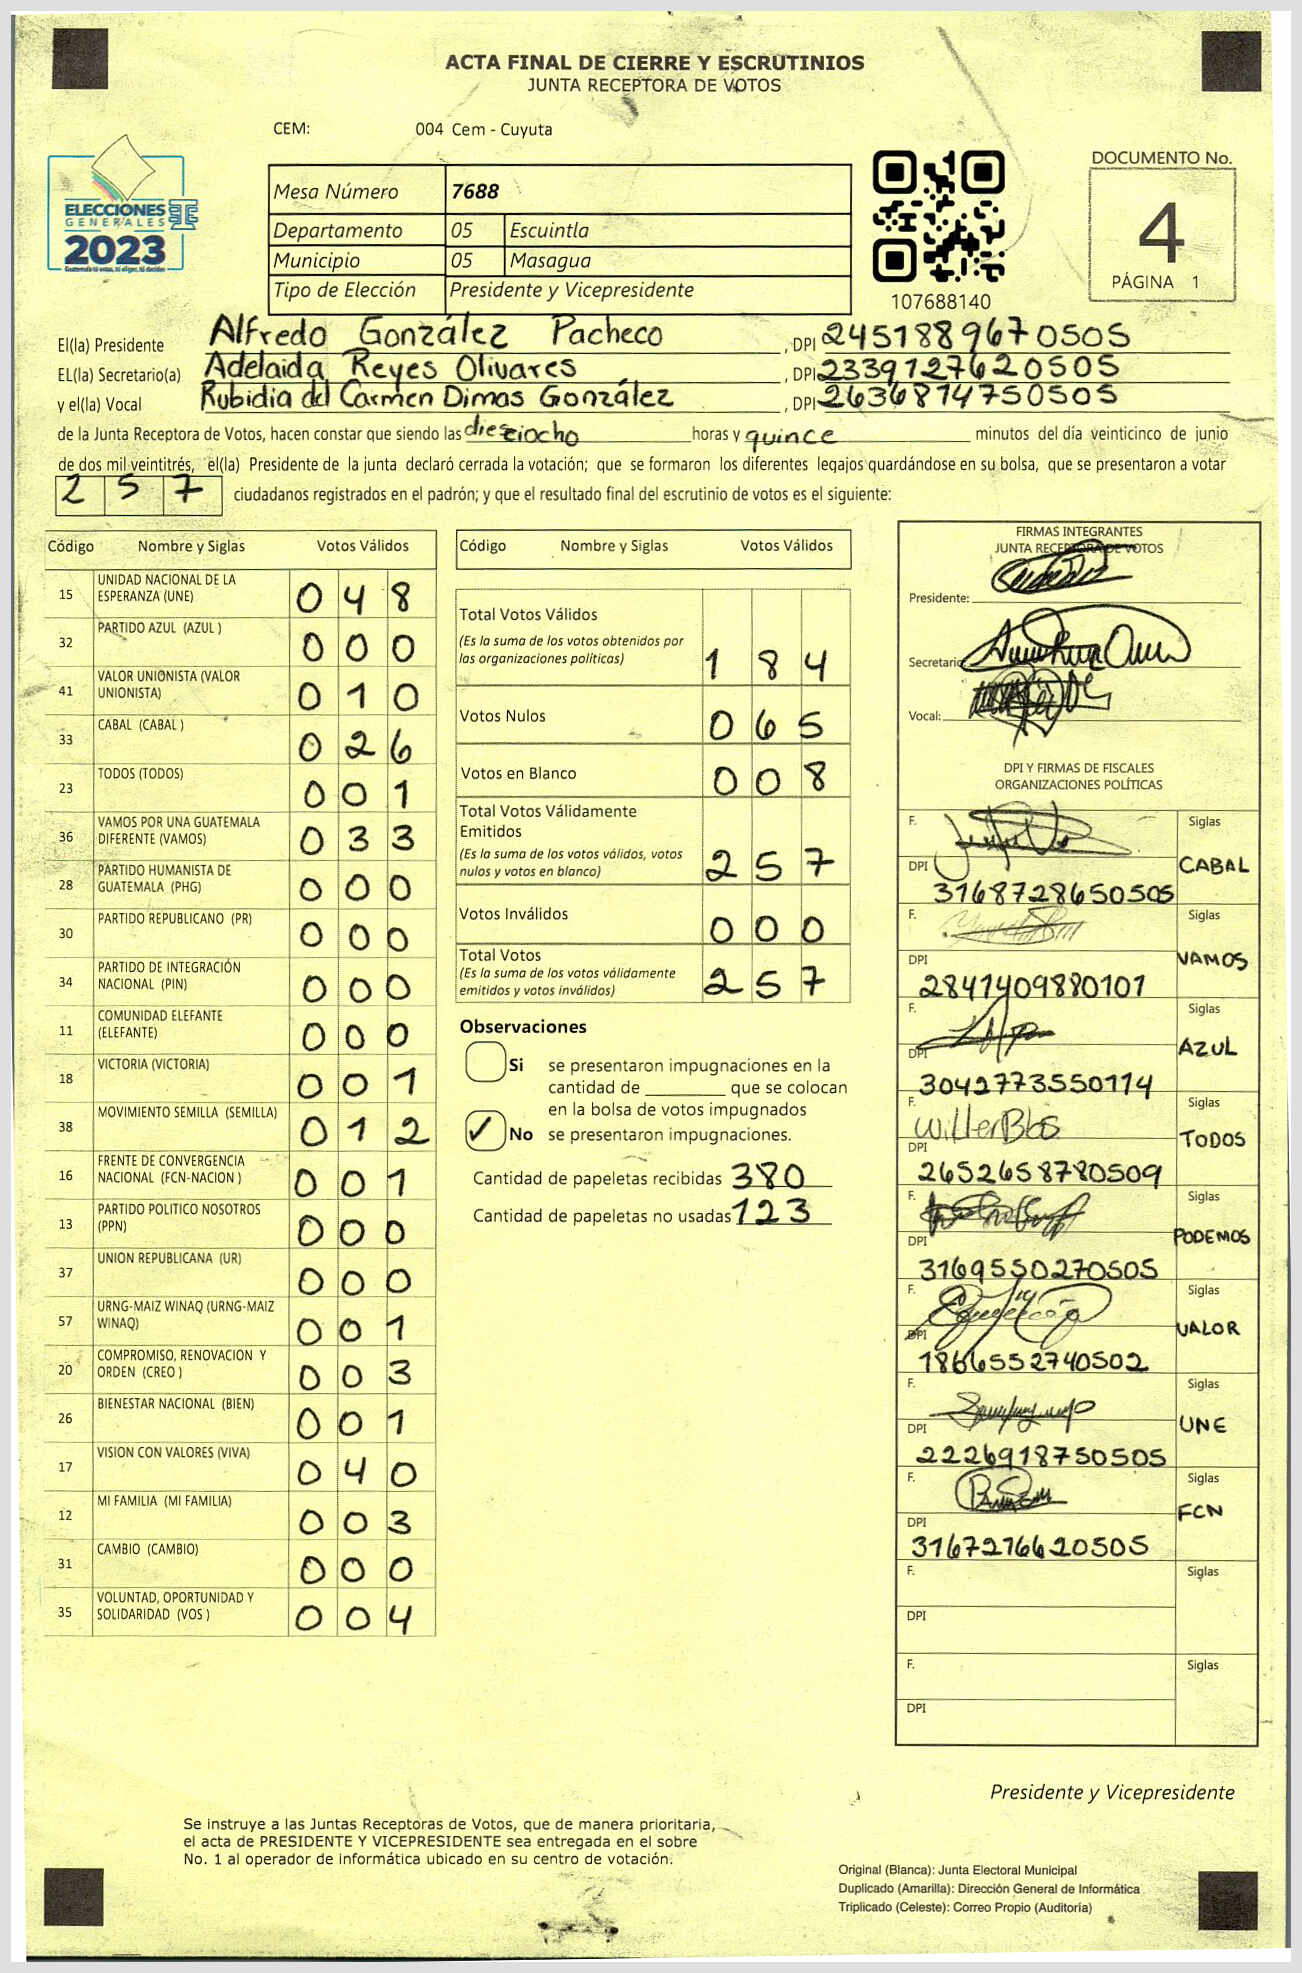 ACTA FINAL DE CIERRE Y ESCRUTINIOS
JUNTA RECEPTORA DE VOTOS
CEM: 004 Cem - Cuyuta
ELECCIONES
GENERALES
2023
Mesa Número 7688
Departamento 05 Escuintla
Municipio 05 Masagua
Tipo de Elección Presidente y Vicepresidente
107688140
DOCUMENTO No.
4
PÁGINA 1
El(la) Presidente Alfredo González Pacheco, DPI 2451889670505
EL(la) Secretario(a) Adelaida Reyes Olivares, DPI 2339127620505
y el(la) Vocal Rubidia del Carmen Dimas González, DPI 2636814750505
de la Junta Receptora de Votos, hacen constar que siendo las dieciocho horas y quince minutos del día veinticinco de junio
de dos mil veintitrés, el(la) Presidente de la junta declaró cerrada la votación; que se formaron los diferentes legajos guardándose en su bolsa, que se presentaron a votar
2 5 7 ciudadanos registrados en el padrón; y que el resultado final del escrutinio de votos es el siguiente:
Código Nombre y Siglas Votos Válidos
15 UNIDAD NACIONAL DE LA ESPERANZA (UNE) 0 4 8
32 PARTIDO AZUL (AZUL ) 0 0 0
41 VALOR UNIONISTA (VALOR UNIONISTA) 0 1 0
33 CABAL (CABAL ) 0 2 6
23 TODOS (TODOS) 0 0 1
36 VAMOS POR UNA GUATEMALA DIFERENTE (VAMOS) 0 3 3
28 PARTIDO HUMANISTA DE GUATEMALA (PHG) 0 0 0
30 PARTIDO REPUBLICANO (PR) 0 0 0
34 PARTIDO DE INTEGRACIÓN NACIONAL (PIN) 0 0 0
11 COMUNIDAD ELEFANTE (ELEFANTE) 0 0 0
18 VICTORIA (VICTORIA) 0 0 1
38 MOVIMIENTO SEMILLA (SEMILLA) 0 1 2
16 FRENTE DE CONVERGENCIA NACIONAL (FCN-NACION ) 0 0 1
13 PARTIDO POLITICO NOSOTROS (PPN) 0 0 0
37 UNION REPUBLICANA (UR) 0 0 0
57 URNG-MAIZ WINAQ (URNG-MAIZ WINAQ) 0 0 1
20 COMPROMISO, RENOVACION Y ORDEN (CREO ) 0 0 3
26 BIENESTAR NACIONAL (BIEN) 0 0 1
17 VISION CON VALORES (VIVA) 0 4 0
12 MI FAMILIA (MI FAMILIA) 0 0 3
31 CAMBIO (CAMBIO) 0 0 0
35 VOLUNTAD, OPORTUNIDAD Y SOLIDARIDAD (VOS ) 0 0 4
Código Nombre y Siglas Votos Válidos
Total Votos Válidos
(Es la suma de los votos obtenidos por
las organizaciones políticas) 1 8 4
Votos Nulos 0 6 5
Votos en Blanco 0 0 8
Total Votos Válidamente
Emitidos
(Es la suma de los votos válidos, votos
nulos y votos en blanco) 2 5 7
Votos Inválidos 0 0 0
Total Votos
(Es la suma de los votos válidamente
emitidos y votos inválidos) 2 5 7
Observaciones
Si se presentaron impugnaciones en la
cantidad de ________ que se colocan
en la bolsa de votos impugnados
✓ No se presentaron impugnaciones.
Cantidad de papeletas recibidas 380
Cantidad de papeletas no usadas 123
FIRMAS INTEGRANTES
JUNTA RECEPTORA DE VOTOS
Presidente:
Secretario
Vocal:
DPI Y FIRMAS DE FISCALES
ORGANIZACIONES POLÍTICAS
F. Siglas
DPI 3168728650505 CABAL
F. Siglas
DPI 2841409880101 VAMOS
F. Siglas
DPI 3042773550114 AZUL
F. Siglas
DPI 2652658780509 TODOS
F. Siglas
DPI 3169550270505 PODEMOS
F. Siglas
DPI 1866552740502 VALOR
F. Siglas
DPI 2226918750505 UNE
F. Siglas
DPI 3167216620505 FCN
F. Siglas
DPI
F. Siglas
DPI
Presidente y Vicepresidente
Se instruye a las Juntas Receptoras de Votos, que de manera prioritaria,
el acta de PRESIDENTE Y VICEPRESIDENTE sea entregada en el sobre
No. 1 al operador de informática ubicado en su centro de votación.
Original (Blanca): Junta Electoral Municipal
Duplicado (Amarilla): Dirección General de Informática
Triplicado (Celeste): Correo Propio (Auditoría)